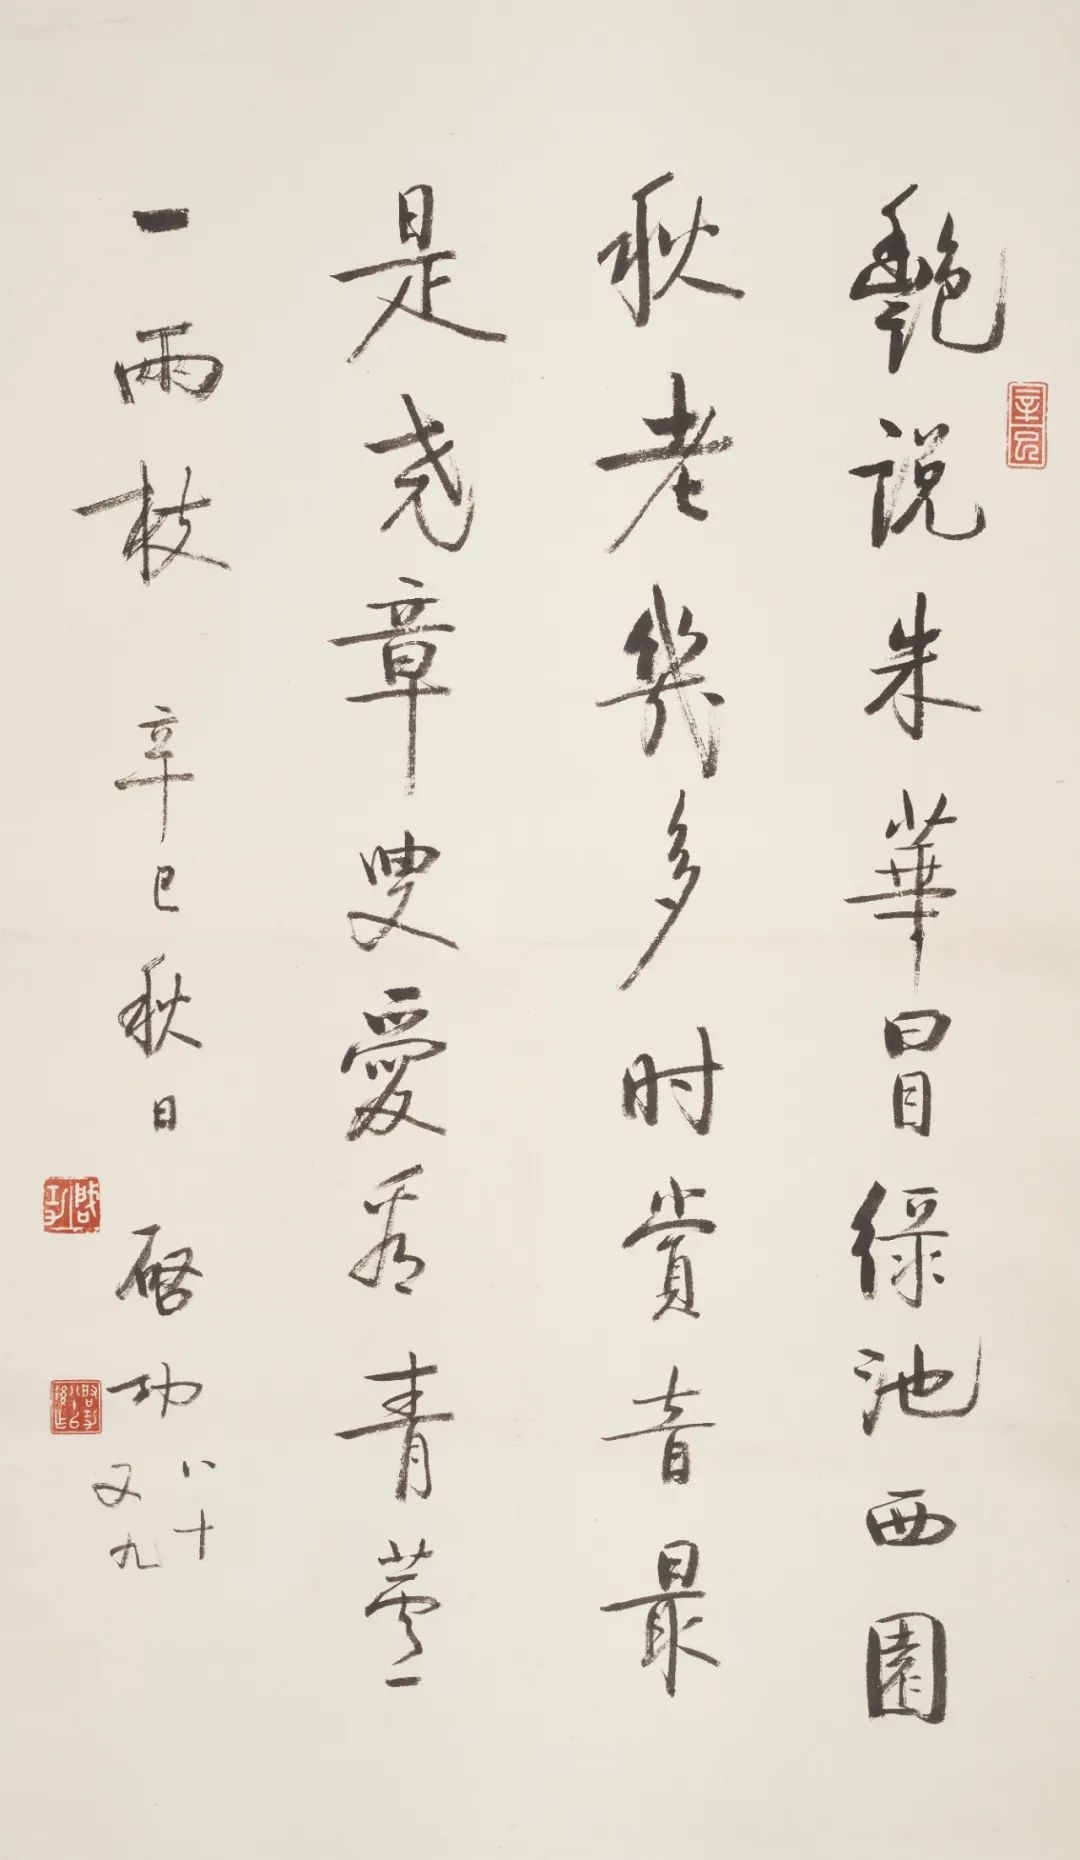 豔說朱華冒綠池西園
秋老幾多时賞音最
是尧章叟愛看青蘆
一兩枝 辛巳秋日 啓功
八十
又九
啓功